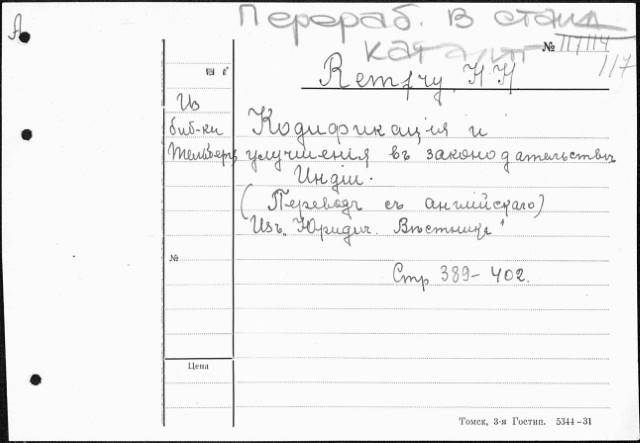 А
Перераб. в станд
каталог
№ 11/114
117
Ретгу Н Н
Из
биб-ки
Кодификация и
улучшенія въ законодательствѣ
Индіи.
(Переводъ съ англійскаго)
Изъ „Юридич. Вѣстника"
№
Стр 389 - 402.
Цена
Томск, 3-я Гостип. 5344-31